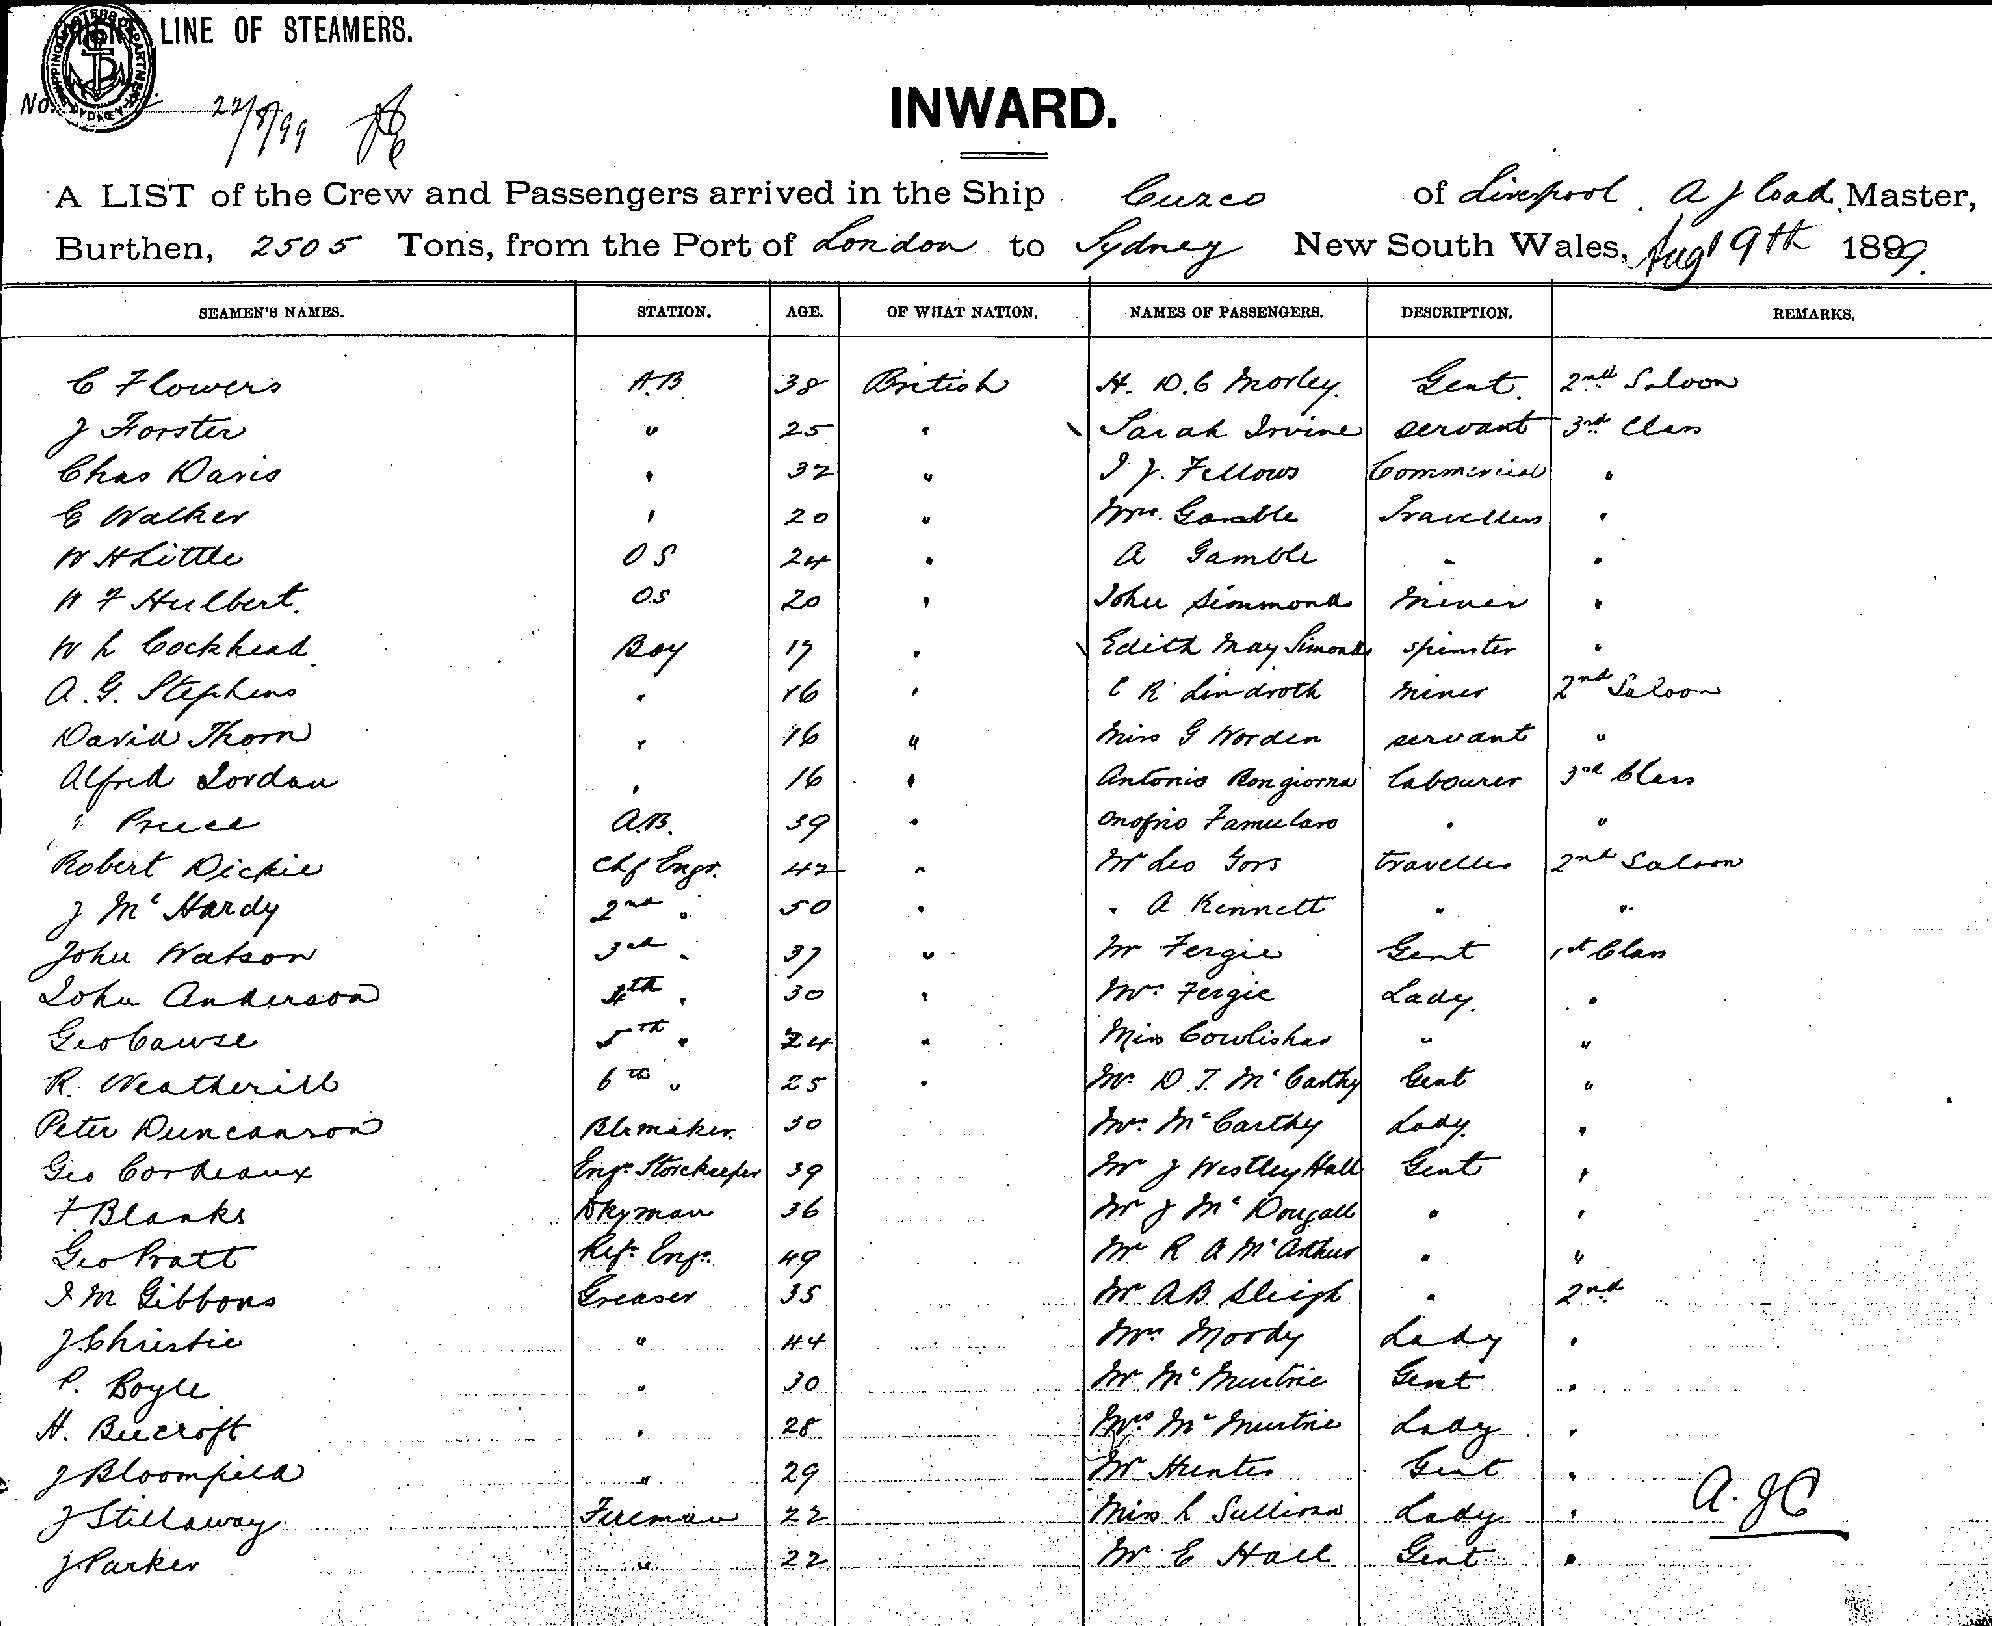 LINE OF STEAMERS.
No. 22/8/99
INWARD.
A LIST of the Crew and Passengers arrived in the Ship Cuzco of Liverpool. A J Coad, Master,
Burthen, 2505 Tons, from the Port of London to Sydney New South Wales, Augt 9th 1899.
SEAMEN'S NAMES. STATION. AGE. OF WHAT NATION. NAMES OF PASSENGERS. DESCRIPTION. REMARKS.
C Flowers A.B 38 British H. D. C Morley. Gent. 2nd Saloon
J Forster " 25 " Sarah Irvine servant 3rd Class
Chas Davis " 32 " I J. Fellows Commercial "
E Walker " 20 " Mrs. Gamble Travellers "
W H Little O S 24 " A Gamble " "
H F Hulbert. O.S 20 " John Simmonds miner "
W L Cockhead. Boy 17 " Edith May Simonds spinster "
A. G. Stephens " 16 " C R Lindroth miner 2nd Saloon
David Thorn " 16 " Miss G Worden servant "
Alfred Jordan " 16 " Antonio Bongiorna labourer 3rd Class
" Preece A.B. 39 " Onofrio Famularo " "
Robert Dickie Chf Engr. 42 " Mr Leo Gors traveller 2nd Saloon
J McHardy 2nd " 50 " " A Kennett " "
John Watson 3rd " 37 " Mr Fergie Gent 1st Class
John Anderson 4th " 30 " Mrs Fergie Lady. "
Geo Cawse 5th " 24 " Miss Cowlishaw " "
R. Weatherill 6th " 25 " Mr. D. T. McCarthy Gent "
Peter Duncanson Blrmaker. 30 Mrs McCarthy Lady. "
Geo Cordeaux Engr Storekeeper 39 Mr J Westley Hall Gent "
F Blanks Dkyman 36 Mr J McDougall " "
Geo Pratt Refr. Engr. 49 Mr R A McArthur " "
I M Gibbons Greaser 35 Mr A B Sleigh " 2nd
J Christie " 44 Mrs Moody Lady "
P. Boyle " 30 Mr McMurtrie Gent "
H. Beecroft " 28 Mrs McMurtrie Lady "
J Bloomfield " 29 Mr Hunter Gent "
J Stillaway Fireman 22 Miss L Sullivan Lady "
J Parker " 22 Mr E Hall Gent "
A. J C